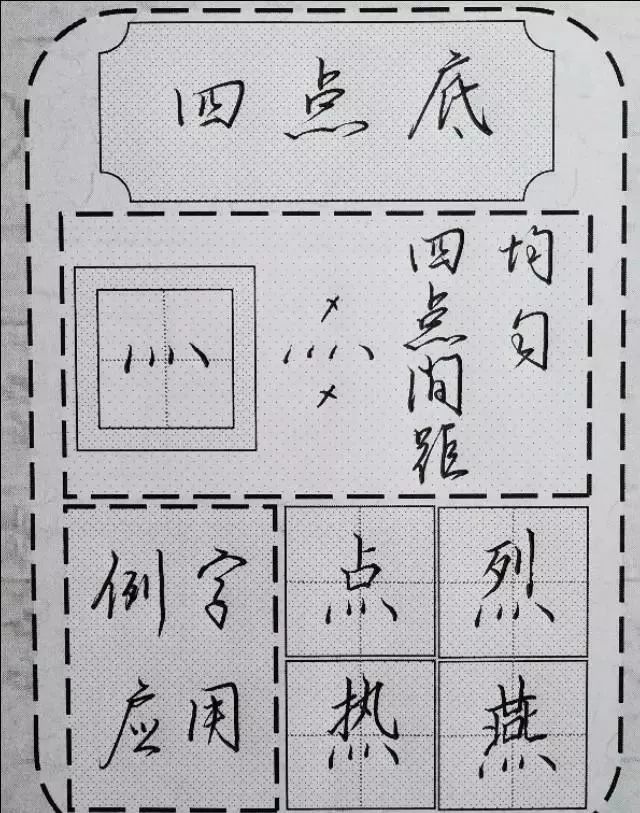 四点底
灬
灬
四点间距
均匀
例字
应用
点
烈
热
燕